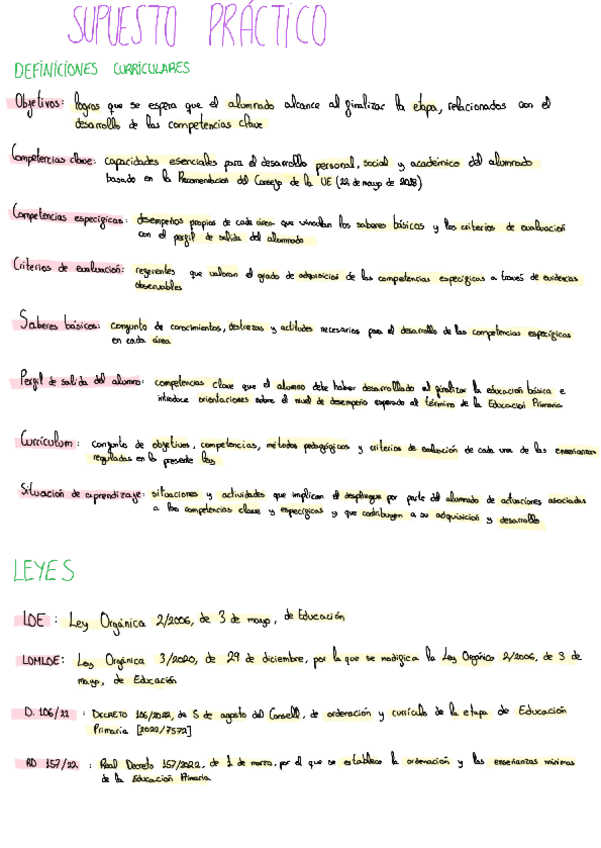 SUPUESTO PRÁCTICO
DEFINICIONES CURRICULARES
Objetivos: logros que se espera que el alumnado alcance al finalizar la etapa, relacionados con el
desarrollo de las competencias clave
Competencias clave: capacidades esenciales para el desarrollo personal, social y académico del alumnado
basado en la Recomendación del Consejo de la UE (22 de mayo de 2018)
Competencias específicas: desempeños propios de cada área que vinculan los saberes básicos y los criterios de evaluación
con el perfil de salida del alumnado
Criterios de evaluación: referentes que valoran el grado de adquisición de las competencias específicas a través de evidencias
observables
Saberes básicos: conjunto de conocimientos, destrezas y actitudes necesarios para el desarrollo de las competencias específicas
en cada área
Perfil de salida del alumno: competencias clave que el alumno debe haber desarrollado al finalizar la educación básica e
introduce orientaciones sobre el nivel de desempeño esperado al término de la Educación Primaria
Currículum: conjunto de objetivos, competencias, métodos pedagógicos y criterios de evaluación de cada una de las enseñanzas
reguladas en la presente ley
Situación de aprendizaje: situaciones y actividades que implican el despliegue por parte del alumnado de actuaciones asociadas
a las competencias clave y específicas y que contribuyen a su adquisición y desarrollo
LEYES
LOE: Ley Orgánica 2/2006, de 3 de mayo, de Educación
LOMLOE: Ley Orgánica 3/2020, de 29 de diciembre, por la que se modifica la Ley Orgánica 2/2006, de 3 de
mayo, de Educación
D. 106/22: DECRETO 106/2022, de 5 de agosto del Consell, de ordenación y currículo de la etapa de Educación
Primaria [2022/7572]
RD 157/22: Real Decreto 157/2022, de 1 de marzo, por el que se establece la ordenación y las enseñanzas mínimas
de la Educación Primaria